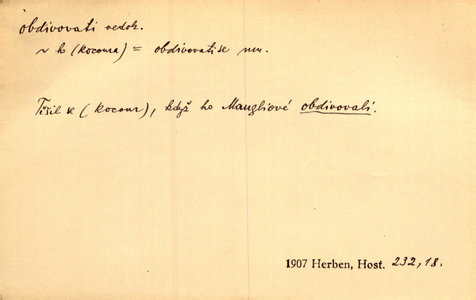 obdivovati nedok.
~ ho (kocoura) = obdivovati se mu.
Těšil se (kocour), když ho Maugliové obdivovali.
1907 Herben, Host. 232, 18.